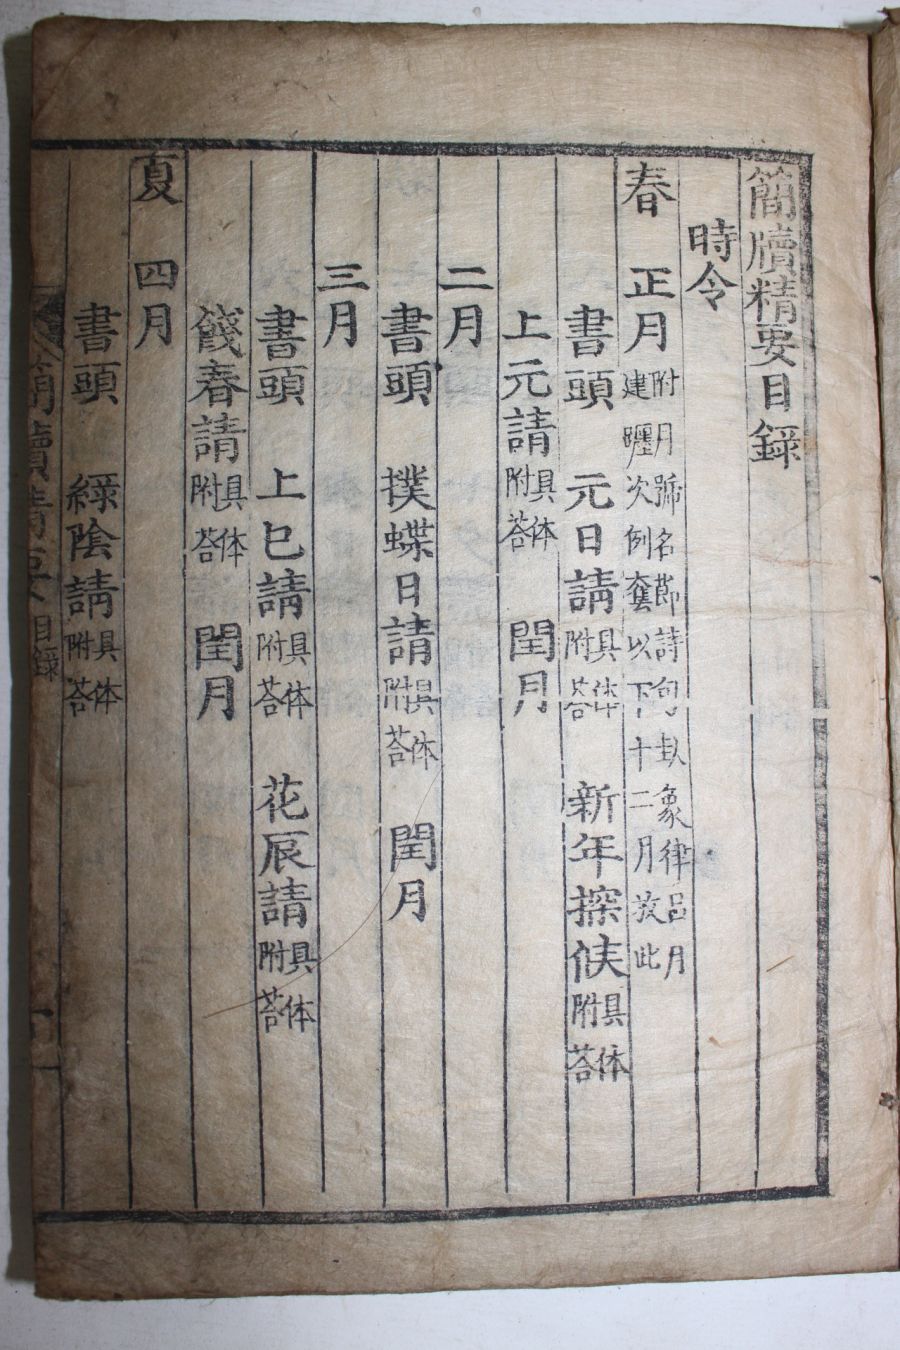 簡牘精要目録
時令
春 正月 附月號名節詩句卦象律呂月建躔次例套以下十二月放此
書頭 元日請 具体附荅 新年探候 具体附荅
上元請 具体附荅 閏月
二月
書頭 撲蝶日請 具体附荅 閏月
三月
書頭 上巳請 具体附荅 花辰請 具体附荅
餞春請 具体附荅 閏月
夏 四月
書頭 綠陰請 具体附荅
簡牘精要 目録 一